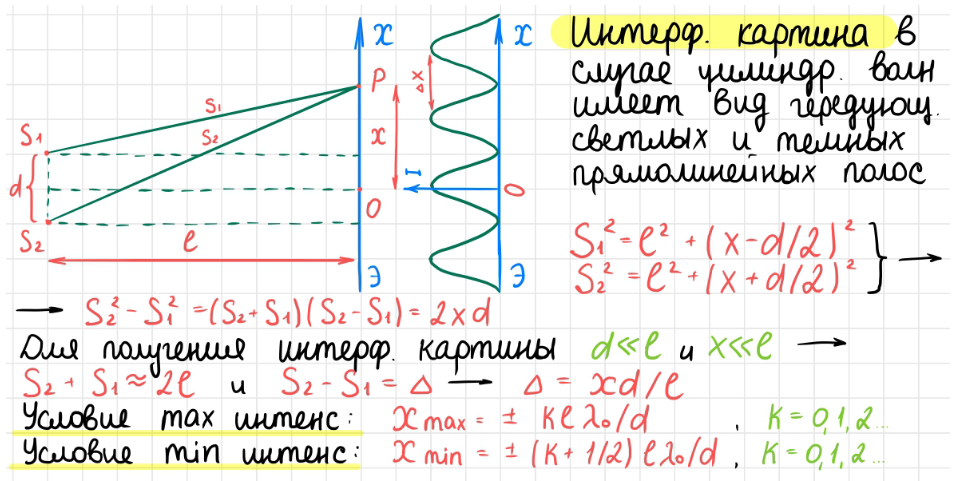 x
P
S₁
S₂
x
S₁
d
S₂
O
l
Э
x
Δx
I
O
Э
Интерф. картина в
случае цилиндр. волн
имеет вид чередующ.
светлых и темных
прямолинейных полос
S₁² = l² + (x - d/2)²
S₂² = l² + (x + d/2)²
→
→ S₂² - S₁² = (S₂ + S₁)(S₂ - S₁) = 2xd
Для получения интерф. картины d ≪ l и x ≪ l →
S₂ + S₁ ≈ 2l и S₂ - S₁ = Δ → Δ = xd/l
Условие max интенс: x max = ± k l λ₀/d , k = 0,1,2...
Условие min интенс: x min = ± (k + 1/2) l λ₀/d , k = 0,1,2...